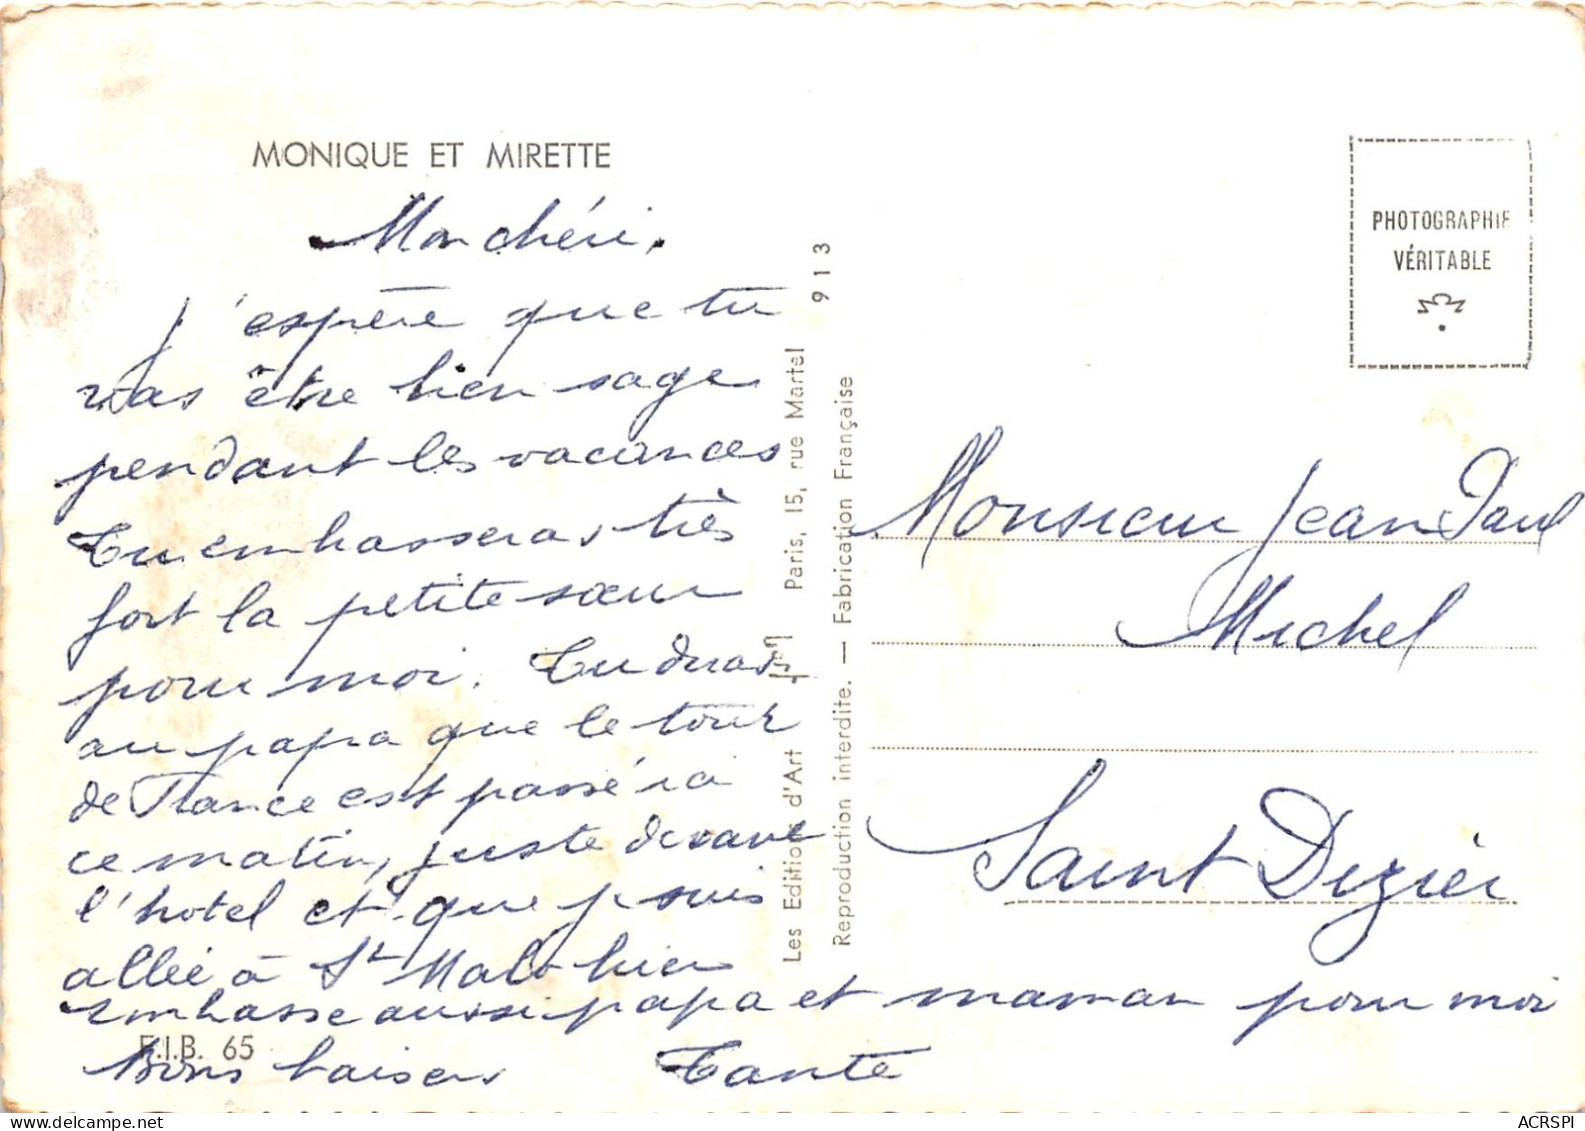 MONIQUE ET MIRETTE
Mon chéri.
J'espère que tu
vas être bien sage
pendant les vacances
Tu embrasseras très
fort la petite sœur
pour moi. Tu diras
au papa que le tour
de France est passé ici
ce matin, juste devant
l'hotel et que je suis
allée à St Malo hier
Embrasse aussi papa et maman pour moi
Bons baisers Tante
E.I.B. 65
Les Editions d'Art Paris, 15, rue Martel 913
Reproduction interdite. — Fabrication Française
PHOTOGRAPHIE
VÉRITABLE
Monsieur Jean Paul
Michel
Saint Dizier
ACRSPI